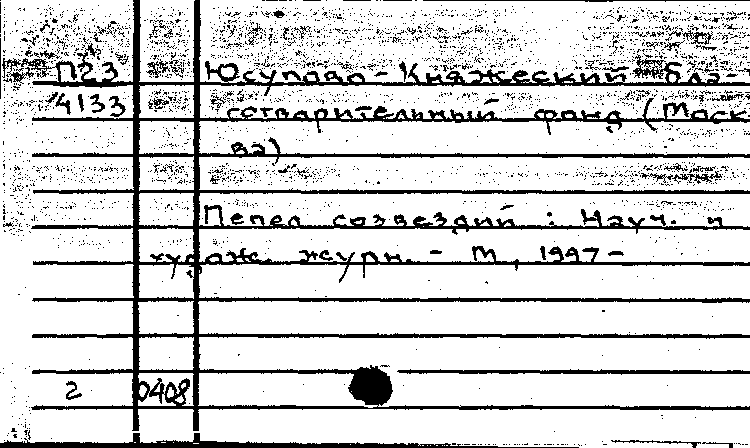 П23 Юсупово-Княжеский бла-
4133 сотварительный фонд (Моск
ва)
Пепел созвездий : Науч. и
худож. журн. - М, 1997-
2 0408